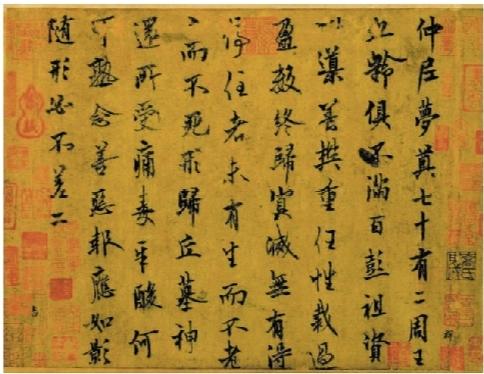 仲尼夢奠七十有二周王
九齡俱不滿百彭祖資
以導養樊重任性裁過
盈數終歸冥滅無有得
停住者未有生而不老
々而不死形歸丘墓神
還所受痛毒辛酸何
可熟念善惡報應如影
隨形必不差二